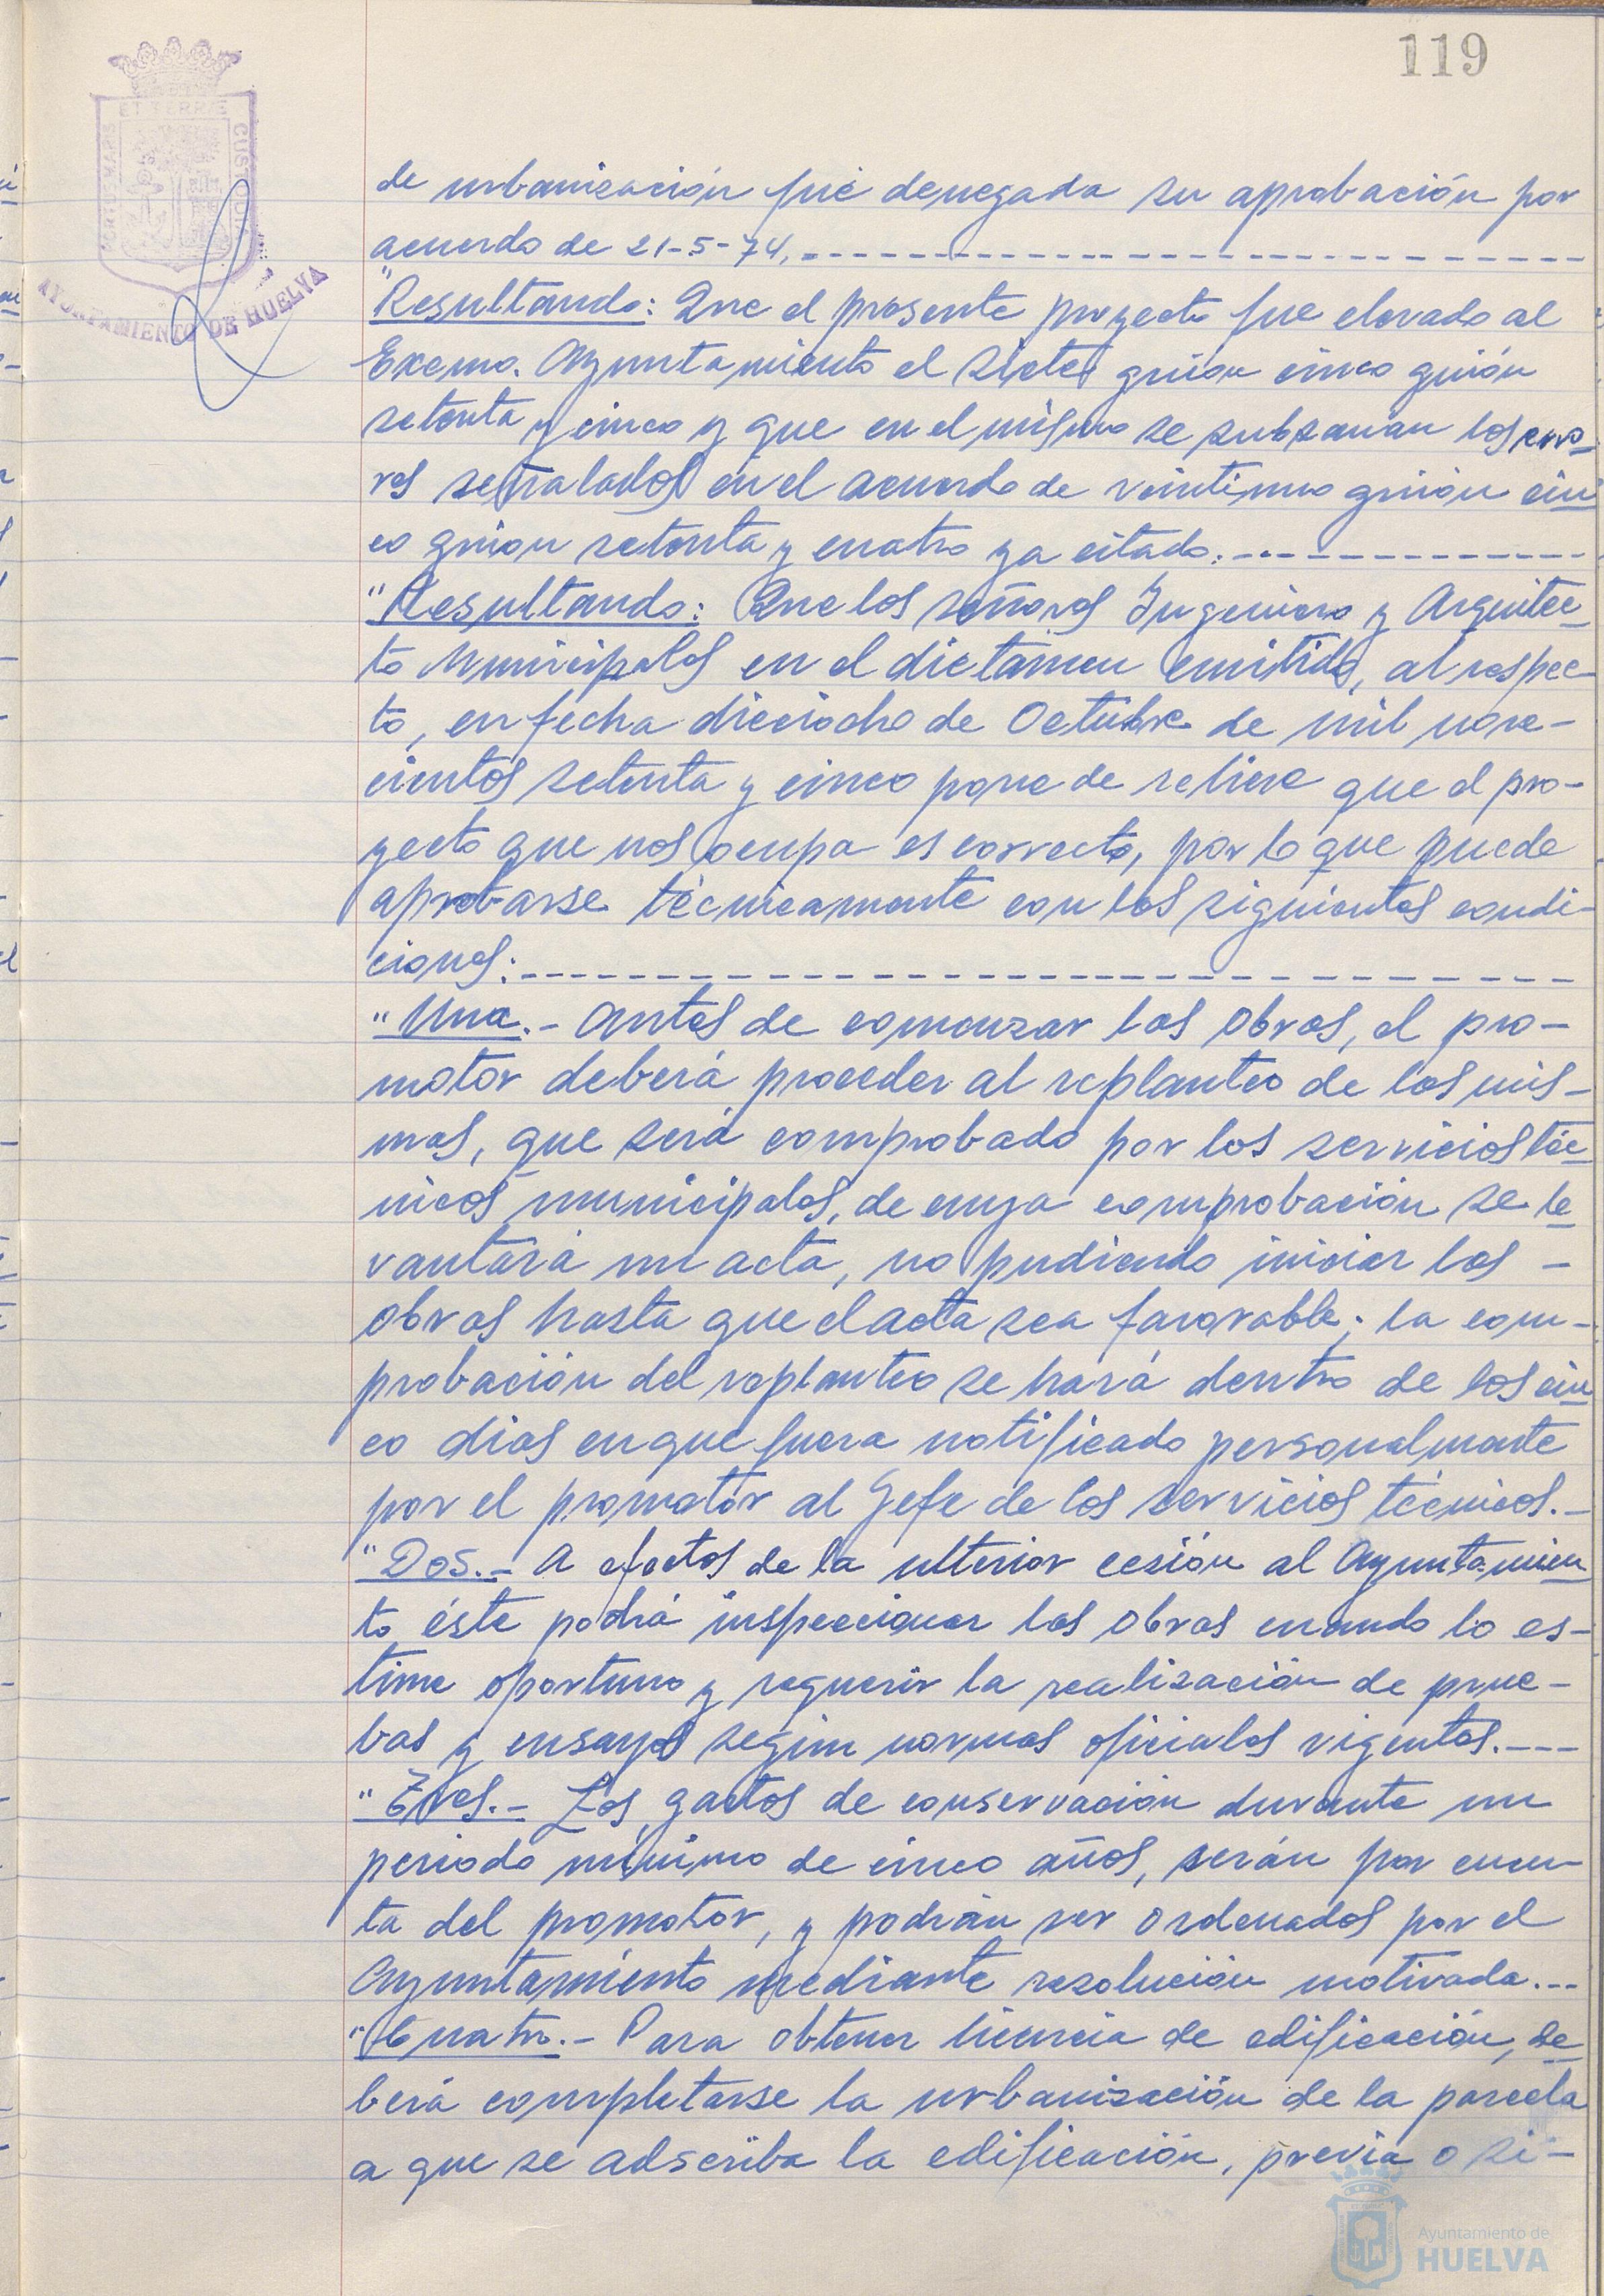 119
PORTUS MARIS ET TERRAE CUSTODIA
AYUNTAMIENTO DE HUELVA
de urbanización fué denegada su aprobación por
acuerdo de 21-5-74.
"Resultando: Que el presente proyecto fue elevado al
Excmo. Ayuntamiento el siete guión cinco guión
setenta y cinco y que en el mismo se subsanan los erro-
res señalados en el acuerdo de veintiuno guión cin
co guion setenta y cuatro ya citado.
"Resultando: Que los señores Ingeniero y Arquitec-
to Municipales en el dictámen emitido, al respec-
to, en fecha dieciocho de Octubre de mil nove-
cientos setenta y cinco pone de relieve que el pro-
yecto que nos ocupa es correcto, por lo que puede
aprobarse técnicamente con las siguientes condi-
ciones:
"Una.- Antes de comenzar las obras, el pro-
motor deberá proceder al replanteo de las mis-
mas, que será comprobado por los servicios téc
nicos municipales, de cuya comprobación se le
vantará un acta, no pudiendo iniciar las -
obras hasta que el acta sea favorable; la com-
probación del replanteo se hará dentro de los cin
co dias en que fuera notificado personalmente
por el promotor al Gefe de los servicios técnicos.-
"Dos.- A efectos de la ulterior cesión al Ayuntamien
to éste podrá inspeccionar las obras cuando lo es-
time oportuno y requerir la realización de prue-
bas y ensayos según normas oficiales vigentes.---
"Tres.- Los gastos de conservación durante un
periodo mínimo de cinco años, serán por cuen-
ta del promotor, y podrán ser ordenados por el
Ayuntamiento mediante resolución motivada.--
"Cuatro.- Para obtener licencia de edificación, de
berá completarse la urbanización de la parcela
a que se adscriba la edificación, previa o si-
Ayuntamiento de
HUELVA